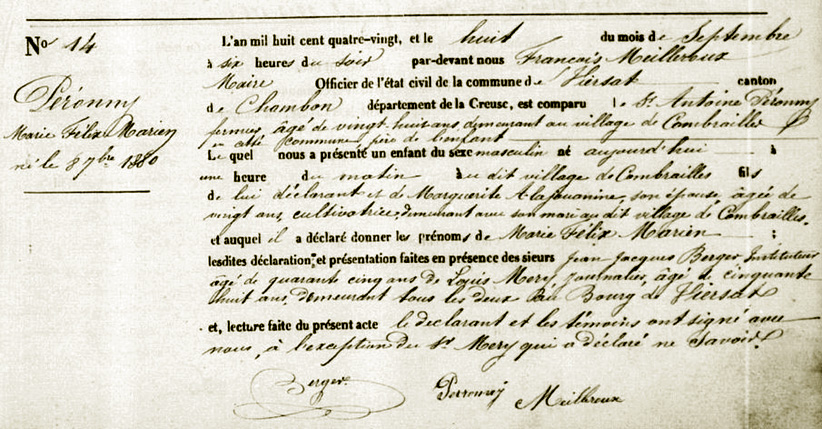 No 14
Péronny
Marie Félix Marien
né le 8 7bre 1880
L'an mil huit cent quatre-vingt, et le huit du mois de Septembre
à six heures du soir par-devant nous François Meilleroux
Maire Officier de l'état civil de la commune de Viersat canton
de Chambon département de la Creuse, est comparu le Sr. Antoine Péronny
fermier, âgé de vingt huit ans demeurant au village de Combrailles
en cette commune, père de l'enfant
Le quel nous a présenté un enfant du sexe masculin né aujourd'hui à
une heure du matin au dit village de Combrailles fils
de lui déclarant et de Marguerite Alajouanine, son épouse, âgée de
vingt ans, cultivatrice, demeurant avec son mari au dit village de Combrailles.
et auquel il a déclaré donner les prénoms de Marie Félix Marien ;
lesdites déclaration et présentation faites en présence des sieurs Jean Jacques Berger Instituteur
âgé de quarante cinq ans de Louis Mery journalier, âgé de cinquante
huit ans, demeurant tous les deux Bourg de Viersat
et, lecture faite du présent acte le déclarant et les témoins ont signé avec
nous, à l'exception du Sr. Mery qui a déclaré ne savoir.
Berger Perronny Meilleroux